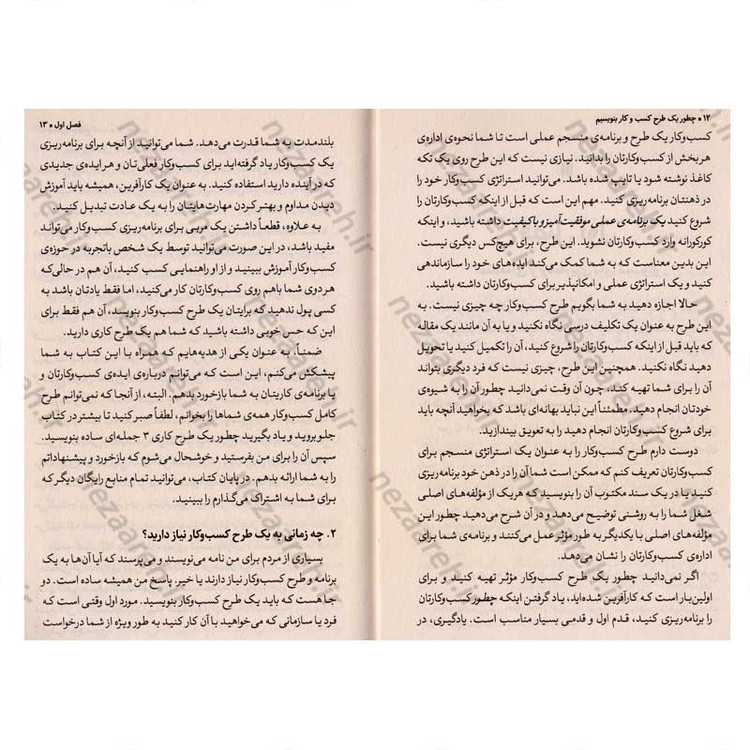 ۱۲ • چطور یک طرح کسب و کار بنویسیم
کسب‌وکار یک طرح و برنامه‌ی منسجم عملی است تا شما نحوه‌ی اداره‌ی
هر بخش از کسب‌وکارتان را بدانید. نیازی نیست که این طرح روی یک تکه
کاغذ نوشته شود یا تایپ شده باشد. می‌توانید استراتژی کسب‌وکار خود را
در ذهنتان برنامه‌ریزی کنید. مهم این است که قبل از اینکه کسب‌وکارتان را
شروع کنید یک برنامه‌ی عملی موفقیت‌آمیز و باکیفیت داشته باشید، و اینکه
کورکورانه وارد کسب‌وکارتان نشوید. این طرح، برای هیچ‌کس دیگری نیست.
این بدین معناست که به شما کمک می‌کند ایده‌های خود را سازماندهی
کنید و یک استراتژی عملی و امکانپذیر برای کسب‌وکارتان داشته باشید.
حالا اجازه دهید به شما بگویم طرح کسب‌وکار چه چیزی نیست. به
این طرح به عنوان یک تکلیف درسی نگاه نکنید و یا به آن مانند یک مقاله
که باید قبل از اینکه کسب‌وکارتان را شروع کنید، آن را تکمیل کنید یا تحویل
دهید نگاه نکنید. همچنین این طرح، چیزی نیست که فرد دیگری بتواند
آن را برای شما تهیه کند، چون آن وقت نمی‌دانید چطور آن را به شیوه‌ی
خودتان انجام دهید. مطمئناً این نباید بهانه‌ای باشد که بخواهید آنچه باید
برای شروع کسب‌وکارتان انجام دهید را به تعویق بیندازید.
دوست دارم طرح کسب‌وکار را به عنوان یک استراتژی منسجم برای
کسب‌وکارتان تعریف کنم که ممکن است شما آن را در ذهن خود برنامه‌ریزی
کنید یا در یک سند مکتوب آن را بنویسید که هریک از مؤلفه‌های اصلی
شغل شما را به روشنی توضیح می‌دهد و در آن شرح می‌دهید چطور این
مؤلفه‌های اصلی با یکدیگر به طور مؤثر عمل می‌کنند و برنامه‌ی شما برای
اداره‌ی کسب‌وکارتان را نشان می‌دهد.
اگر نمی‌دانید چطور یک طرح کسب‌وکار مؤثر تهیه کنید و برای
اولین‌بار است که کارآفرین شده‌اید، یاد گرفتن اینکه چطور کسب‌وکارتان
را برنامه‌ریزی کنید، قدم اول و قدمی بسیار مناسب است. یادگیری، در
فصل اول • ۱۳
بلندمدت به شما قدرت می‌دهد. شما می‌توانید از آنچه برای برنامه‌ریزی
یک کسب‌وکار یاد گرفته‌اید برای کسب‌وکار فعلی‌تان و هر ایده‌ی جدیدی
که در آینده دارید استفاده کنید. به عنوان یک کارآفرین، همیشه باید آموزش
دیدن مداوم و بهتر کردن مهارت‌هایتان را به یک عادت تبدیل کنید.
به علاوه، قطعاً داشتن یک مربی برای برنامه‌ریزی کسب‌وکار می‌تواند
مفید باشد، در این صورت می‌توانید توسط یک شخص باتجربه در حوزه‌ی
کسب‌وکار آموزش ببینید و از او راهنمایی کسب کنید، آن هم در حالی‌که
هر دوی شما باهم روی کسب‌وکارتان کار می‌کنید، اما فقط یادتان باشد به
کسی پول ندهید که برایتان یک طرح کسب‌وکار بنویسد، آن هم فقط برای
این که حس خوبی داشته باشید که شما هم یک طرح کاری دارید.
ضمناً، به عنوان یکی از هدیه‌هایم که همراه با این کتاب به شما
پیشکش می‌کنم، این است که می‌توانم درباره‌ی ایده‌ی کسب‌وکارتان و
یا برنامه‌ی کاریتان به شما بازخورد بدهم. البته، از آنجا که نمی‌توانم طرح
کامل کسب‌وکار همه‌ی شماها را بخوانم، لطفاً صبر کنید تا بیشتر در کتاب
جلو بروید و یاد بگیرید چطور یک طرح کاری ۳ جمله‌ای ساده بنویسید.
سپس آن را برای من بفرستید و خوشحال می‌شوم که بازخورد و پیشنهاداتم
را به شما ارائه بدهم. در پایان کتاب، می‌توانید تمام منابع رایگان دیگر که
برای شما به اشتراک می‌گذارم را ببینید.
۲. چه زمانی به یک طرح کسب‌وکار نیاز دارید؟
بسیاری از مردم برای من نامه می‌نویسند و می‌پرسند که آیا آن‌ها به یک
برنامه و طرح کسب‌وکار نیاز دارند یا خیر. پاسخ من همیشه ساده است. دو
جا هست که باید یک طرح کسب‌وکار بنویسید. مورد اول وقتی است که
فرد یا سازمانی که می‌خواهید با آن کار کنید به طور ویژه از شما درخواست
nezaareh.ir